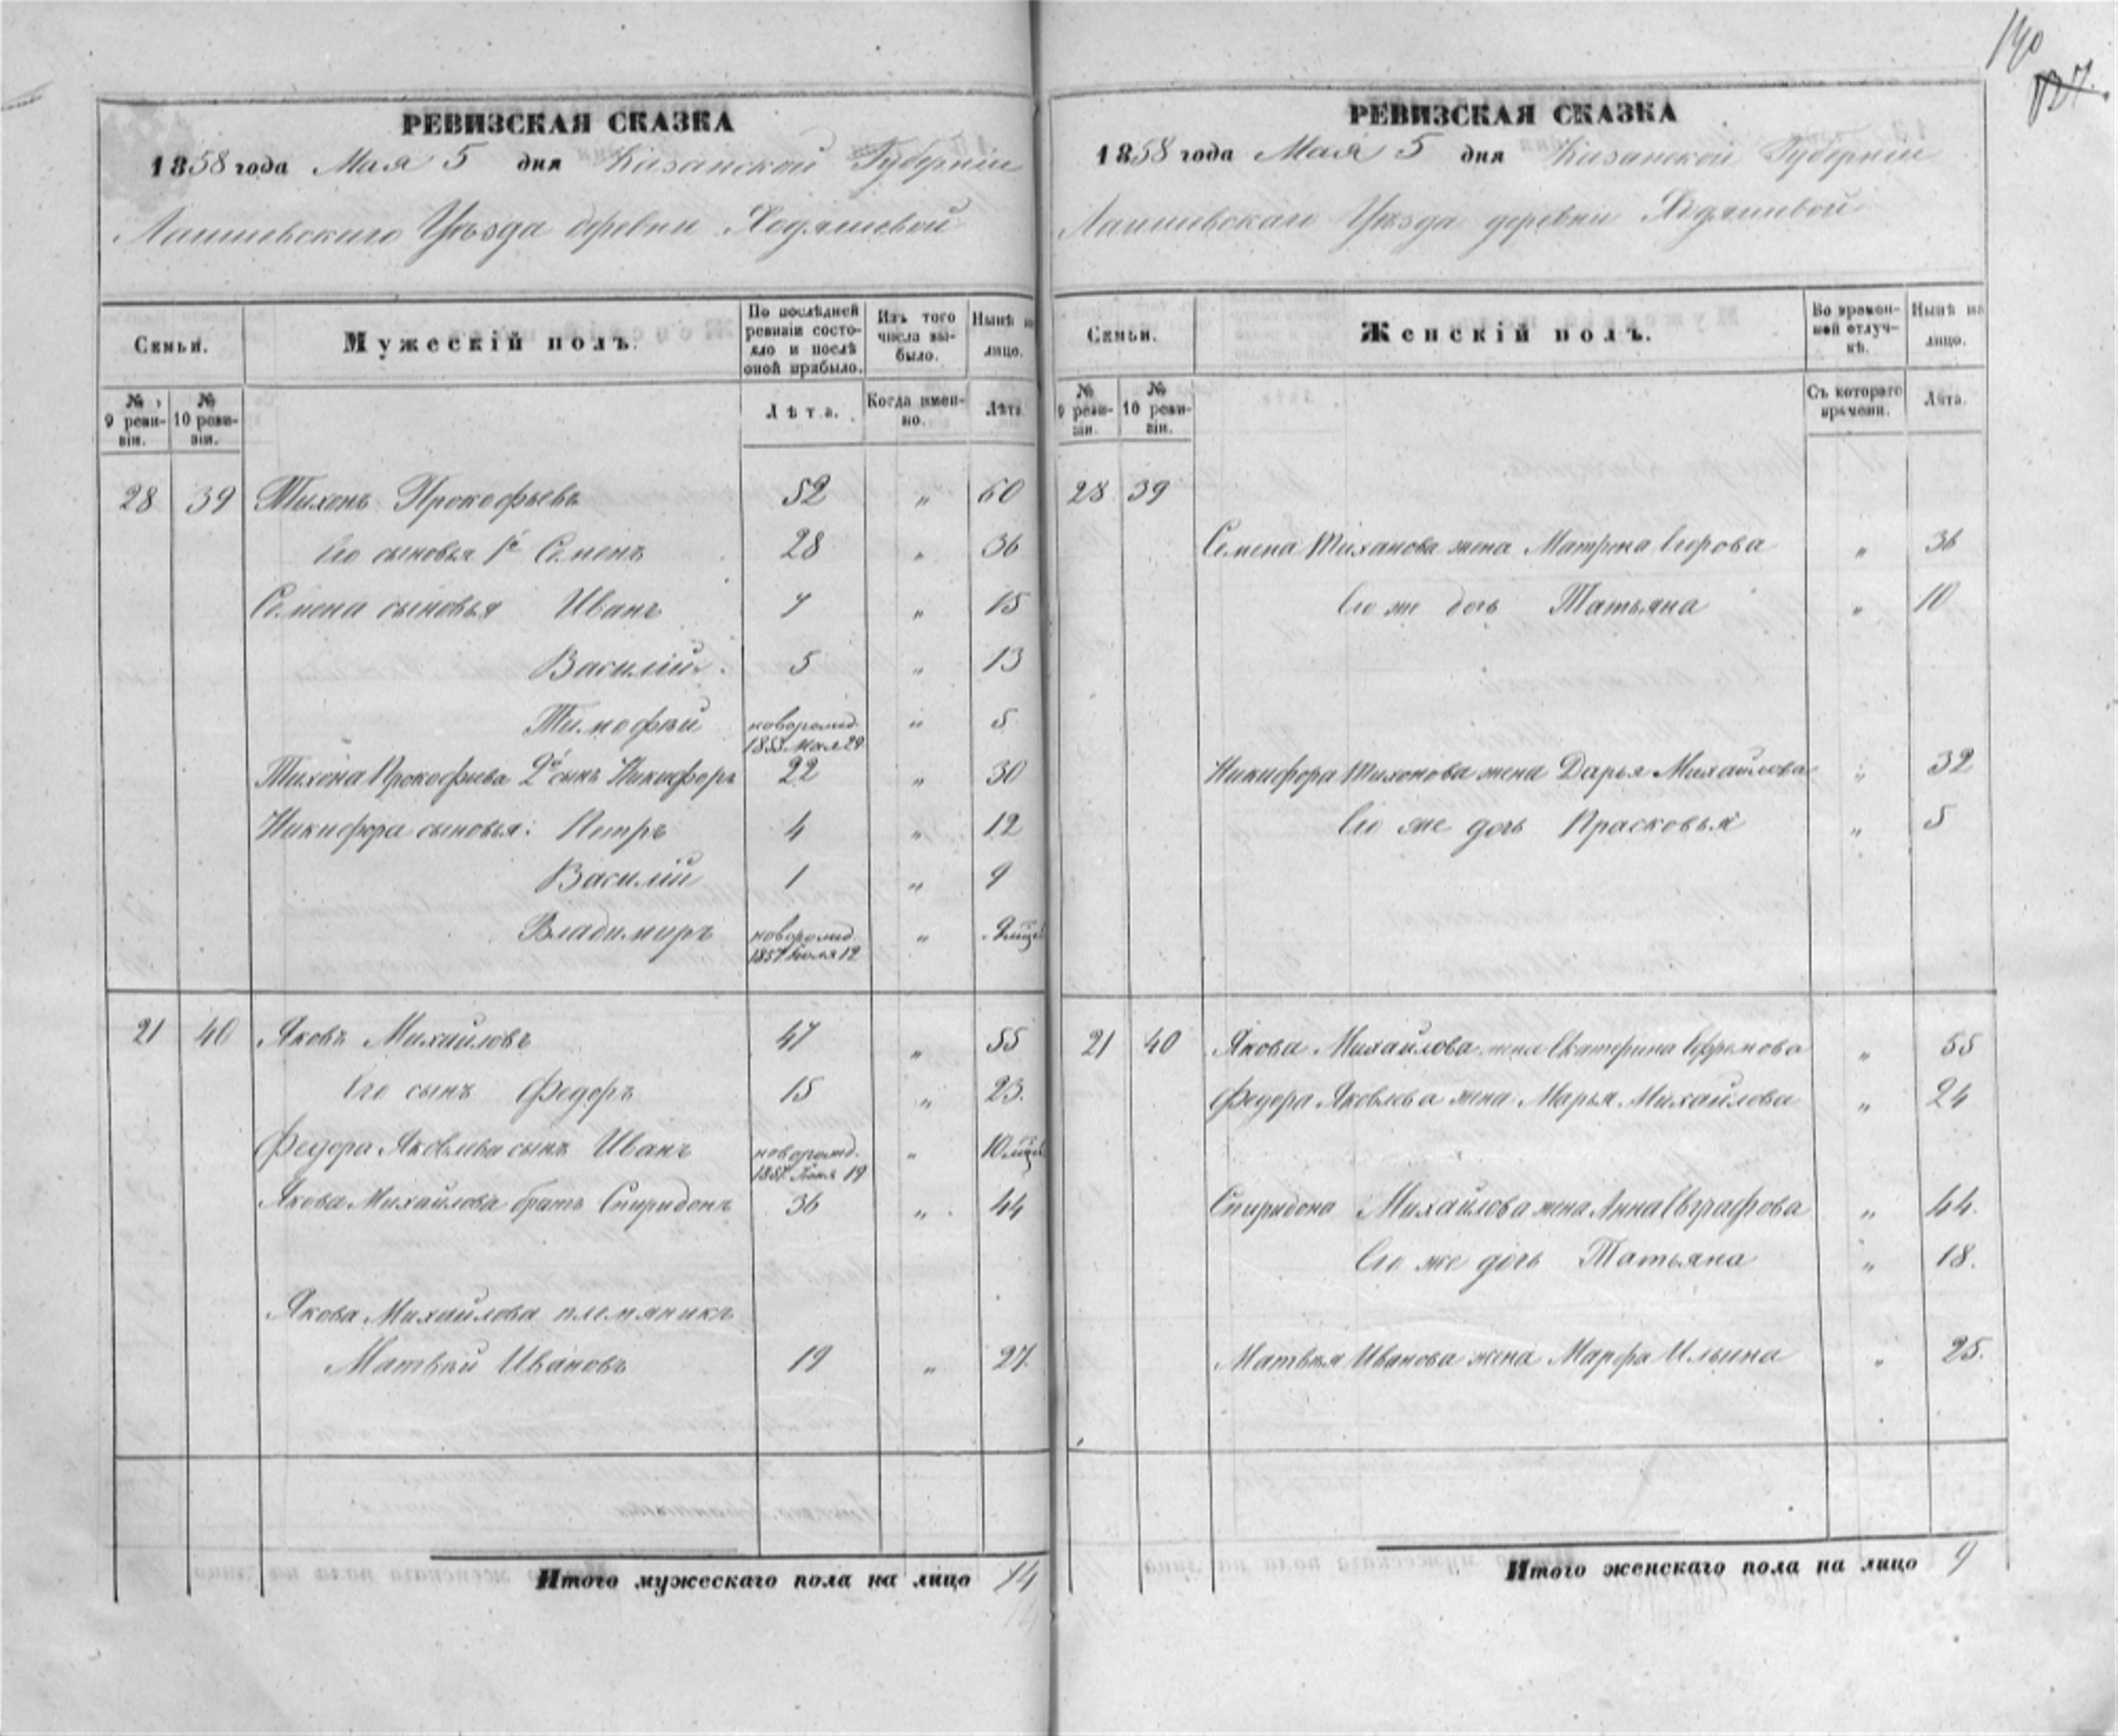 140
127.
РЕВИЗСКАЯ СКАЗКА
1858 года Мая 5 дня Казанской Губерніи
Лаишевскаго Уѣзда деревни Ходяшевой
Семьи.
Мужескій полъ.
По послѣдней ревизіи состояло и послѣ оной прибыло.
Изъ того числа выбыло.
Нынѣ на лицо.
№ 9 ревизіи.
№ 10 ревизіи.
Лѣта.
Когда именно.
Лѣта
28 39 Тихонъ Прокофьевъ 52 „ 60
Его сыновья 1й Семенъ 28 „ 36
Семена сыновья Иванъ 7 „ 15
Василій 5 „ 13
Тимофѣй новорожд. 1853 Мая 29 „ 5
Тихона Прокофьева 2й сынъ Никифоръ 22 „ 30
Никифора сыновья: Петръ 4 „ 12
Василій 1 „ 9
Владимиръ новорожд. 1857 Іюля 12 „ 9 мѣц
21 40 Яковъ Михайловъ 47 „ 55
Его сынъ Федоръ 15 „ 23.
Федора Яковлева сынъ Иванъ новорожд. 1857 Іюня 19 „ 10 мѣц
Якова Михайлова братъ Спиридонъ 36 „ 44
Якова Михайлова племяникъ
Матвѣй Ивановъ 19 „ 27.
Итого мужескаго пола на лицо 14
РЕВИЗСКАЯ СКАЗКА
1858 года Мая 5 дня Казанской Губерніи
Лаишевскаго Уѣзда деревни Ходяшевой
Семьи.
Женскій полъ.
Во временной отлучкѣ.
Нынѣ на лицо.
№ 9 ревизіи.
№ 10 ревизіи.
Съ котораго времени.
Лѣта.
28 39
Семена Тиханова жена Матрена Егорова „ 36
Его же дочь Татьяна „ 10
Никифора Тихонова жена Дарья Михайлова „ 32
Его же дочь Прасковья „ 5
21 40 Якова Михайлова жена Екатерина Ефремова „ 55
Федора Яковлева жена Марья Михайлова „ 24
Спиридона Михайлова жена Анна Евграфова „ 44.
Его же дочь Татьяна „ 18.
Матвѣя Иванова жена Марфа Ильина „ 25.
Итого женскаго пола на лицо 9